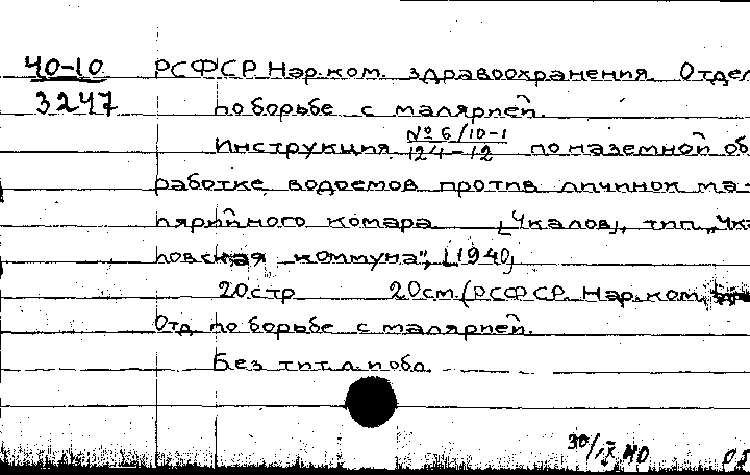 40-10 РСФСР Нар.ком. здравоохранения. Отдел
3247 по борьбе с малярией.
Инструкция № 6/10-1 по наземной об
124-12
работке водоемов против личинок ма-
лярийного комара [Чкалов], тип. „Чка
ловская коммуна", [1940]
20 стр 20 см. (РСФСР. Нар.ком.
Отд. по борьбе с малярией.
Без тит. л. и обл.
30/IX 40